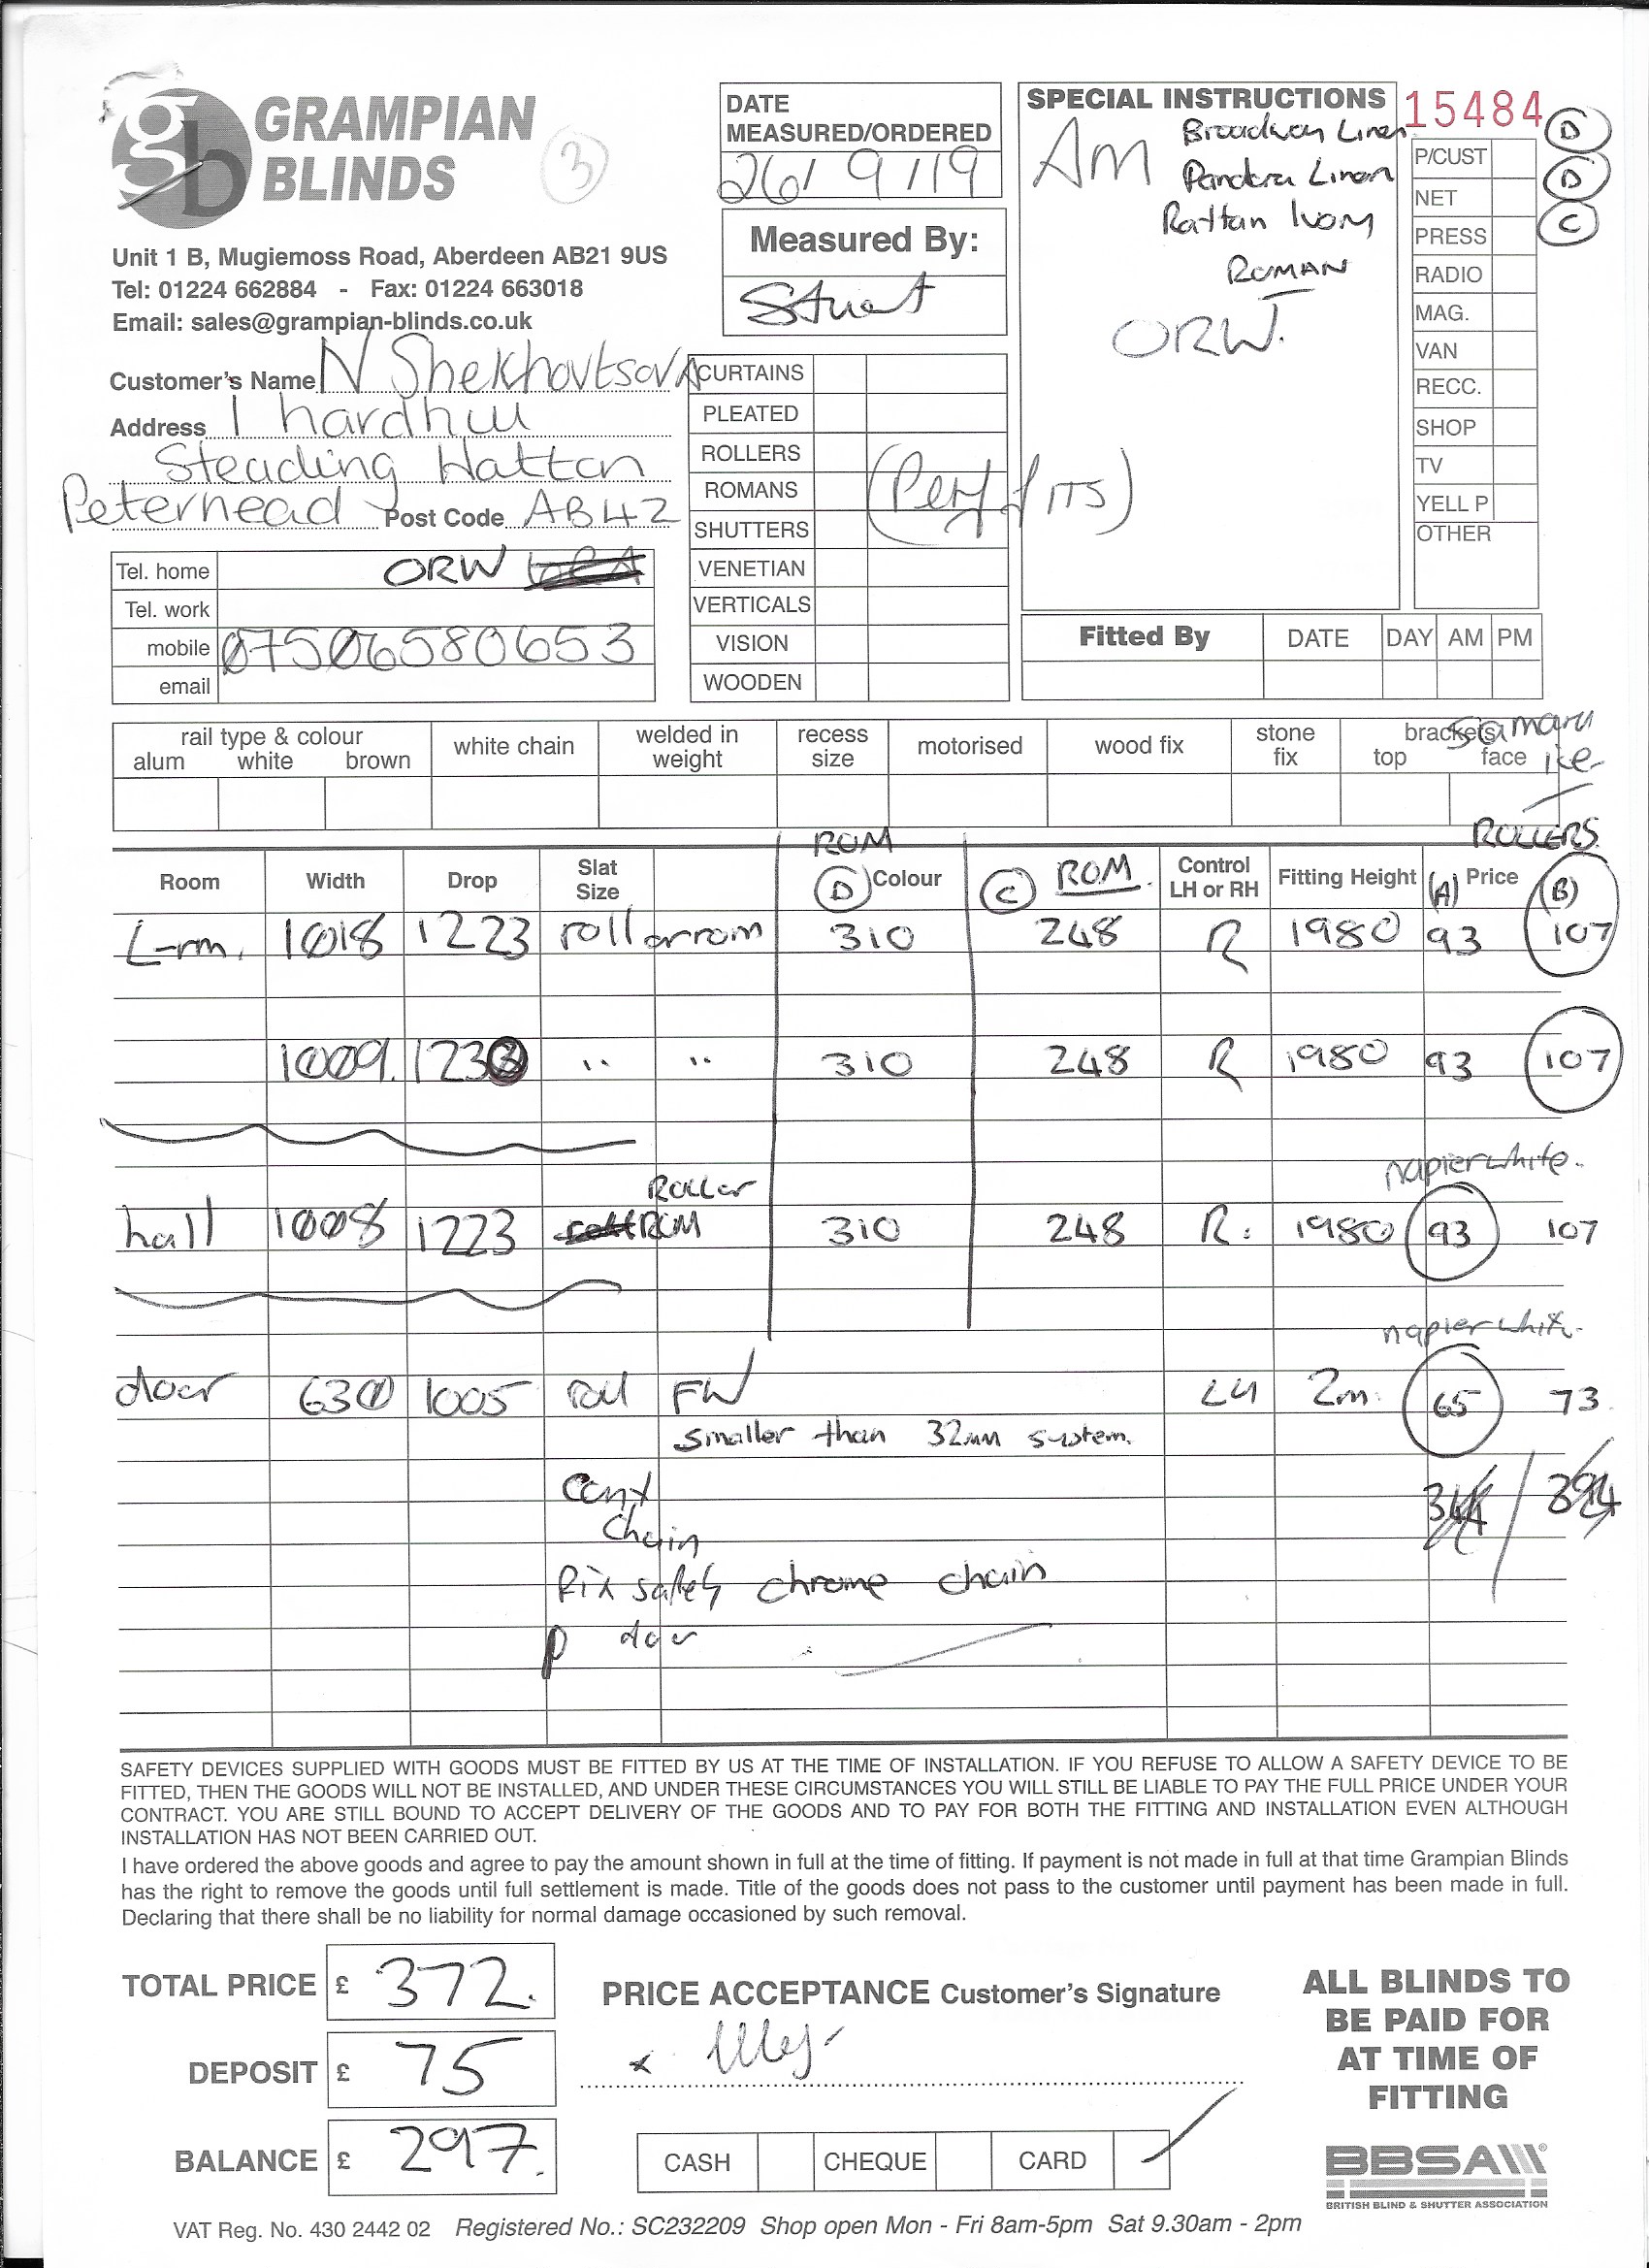 gb GRAMPIAN BLINDS
3
Unit 1 B, Mugiemoss Road, Aberdeen AB21 9US
Tel: 01224 662884 - Fax: 01224 663018
Email: sales@grampian-blinds.co.uk
DATE MEASURED/ORDERED
26/9/19
Measured By:
Stuart
SPECIAL INSTRUCTIONS
AM
Broadway Linen D
Pandora Linen D
Rattan Ivory C
ROMAN
ORW.
15484
P/CUST
NET
PRESS
RADIO
MAG.
VAN
RECC.
SHOP
TV
YELL P
OTHER
Customer's Name N Shekhovtsova
Address 1 hardhill
Steading Hatton
Peterhead Post Code AB42
Tel. home ORW
Tel. work
mobile 07506580653
email
CURTAINS
PLEATED
ROLLERS
ROMANS
SHUTTERS
VENETIAN
VERTICALS
VISION
WOODEN
(Perf fITS)
Fitted By DATE DAY AM PM
rail type & colour
alum white brown
white chain
welded in weight
recess size
motorised
wood fix
stone fix
brackets
top face
Samara
ice
ROLLERS
ROM
Room Width Drop Slat Size D Colour C ROM. Control LH or RH Fitting Height (A) Price (B)
L-rm. 1018 1223 roll or rom 310 248 R 1980 93 107
1009. 1233 " " 310 248 R 1980 93 107
napier white.
Roller
hall 1008 1223 ROM 310 248 R. 1980 93 107
napier white.
door 630 1005 roll FW LH 2m. 65 73
smaller than 32mm system.
344 / 394
Cont
chain
fix safety chrome chain
p door
SAFETY DEVICES SUPPLIED WITH GOODS MUST BE FITTED BY US AT THE TIME OF INSTALLATION. IF YOU REFUSE TO ALLOW A SAFETY DEVICE TO BE
FITTED, THEN THE GOODS WILL NOT BE INSTALLED, AND UNDER THESE CIRCUMSTANCES YOU WILL STILL BE LIABLE TO PAY THE FULL PRICE UNDER YOUR
CONTRACT. YOU ARE STILL BOUND TO ACCEPT DELIVERY OF THE GOODS AND TO PAY FOR BOTH THE FITTING AND INSTALLATION EVEN ALTHOUGH
INSTALLATION HAS NOT BEEN CARRIED OUT.
I have ordered the above goods and agree to pay the amount shown in full at the time of fitting. If payment is not made in full at that time Grampian Blinds
has the right to remove the goods until full settlement is made. Title of the goods does not pass to the customer until payment has been made in full.
Declaring that there shall be no liability for normal damage occasioned by such removal.
TOTAL PRICE £ 372.
DEPOSIT £ 75
BALANCE £ 297.
PRICE ACCEPTANCE Customer's Signature
x
CASH CHEQUE CARD
ALL BLINDS TO
BE PAID FOR
AT TIME OF
FITTING
BBSA
BRITISH BLIND & SHUTTER ASSOCIATION
VAT Reg. No. 430 2442 02 Registered No.: SC232209 Shop open Mon - Fri 8am-5pm Sat 9.30am - 2pm